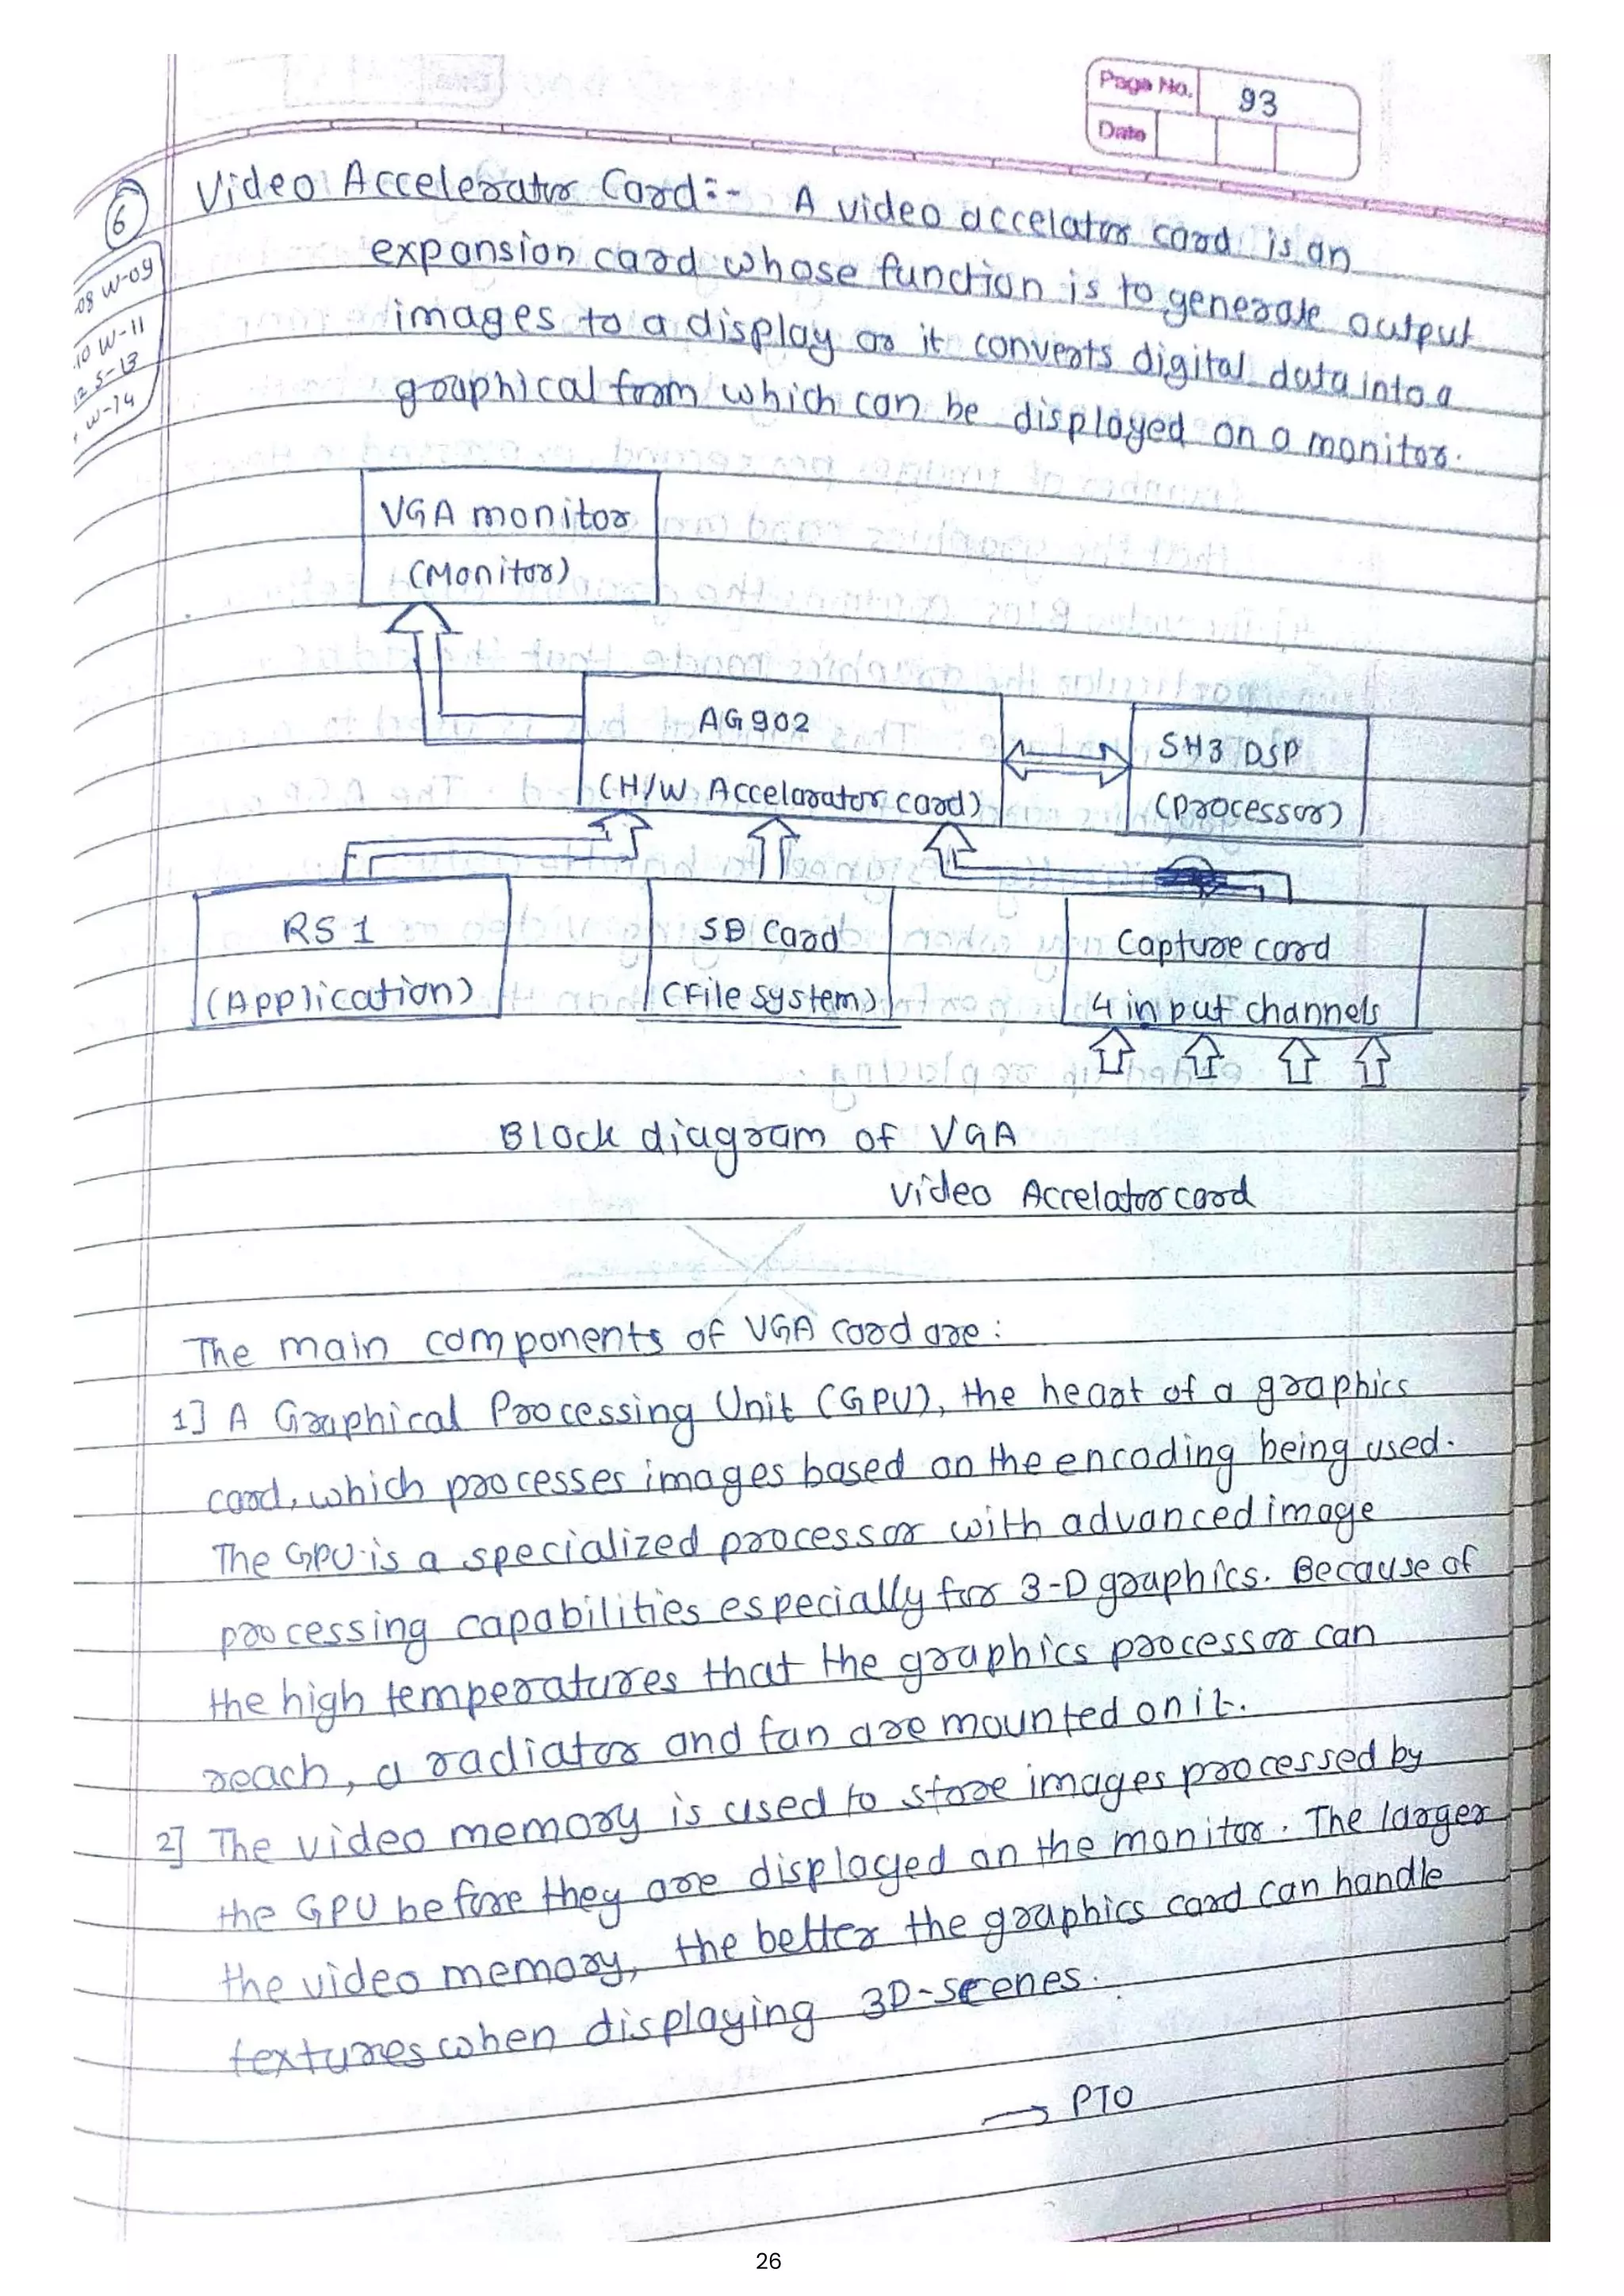 Page No. 93
Date
6
08 W-09
10 W-11
12 S-13
W-14
Video Accelerator Card:- A video accelator card is an
expansion card whose function is to generate output
images to a display or it converts digital data into a
graphical from which can be displayed on a monitor.
VGA monitor
(Monitor)
AG902
(H/W Accelarator card)
SH3 DSP
(Processor)
RS1
(Application)
SD Card
(File system)
Capture card
4 input channels
Block diagram of VGA
Video Accelator card
The main components of VGA card are:
1] A Graphical Processing Unit (GPU), the heart of a graphics
card, which processes images based on the encoding being used.
The GPU is a specialized processor with advanced image
processing capabilities especially for 3-D graphics. Because of
the high temperatures that the graphics processor can
reach, a radiator and fan are mounted on it.
2] The video memory is used to store images processed by
the GPU before they are displayed on the monitor. The larger
the video memory, the better the graphics card can handle
textures when displaying 3D-scenes.
→ PTO
26